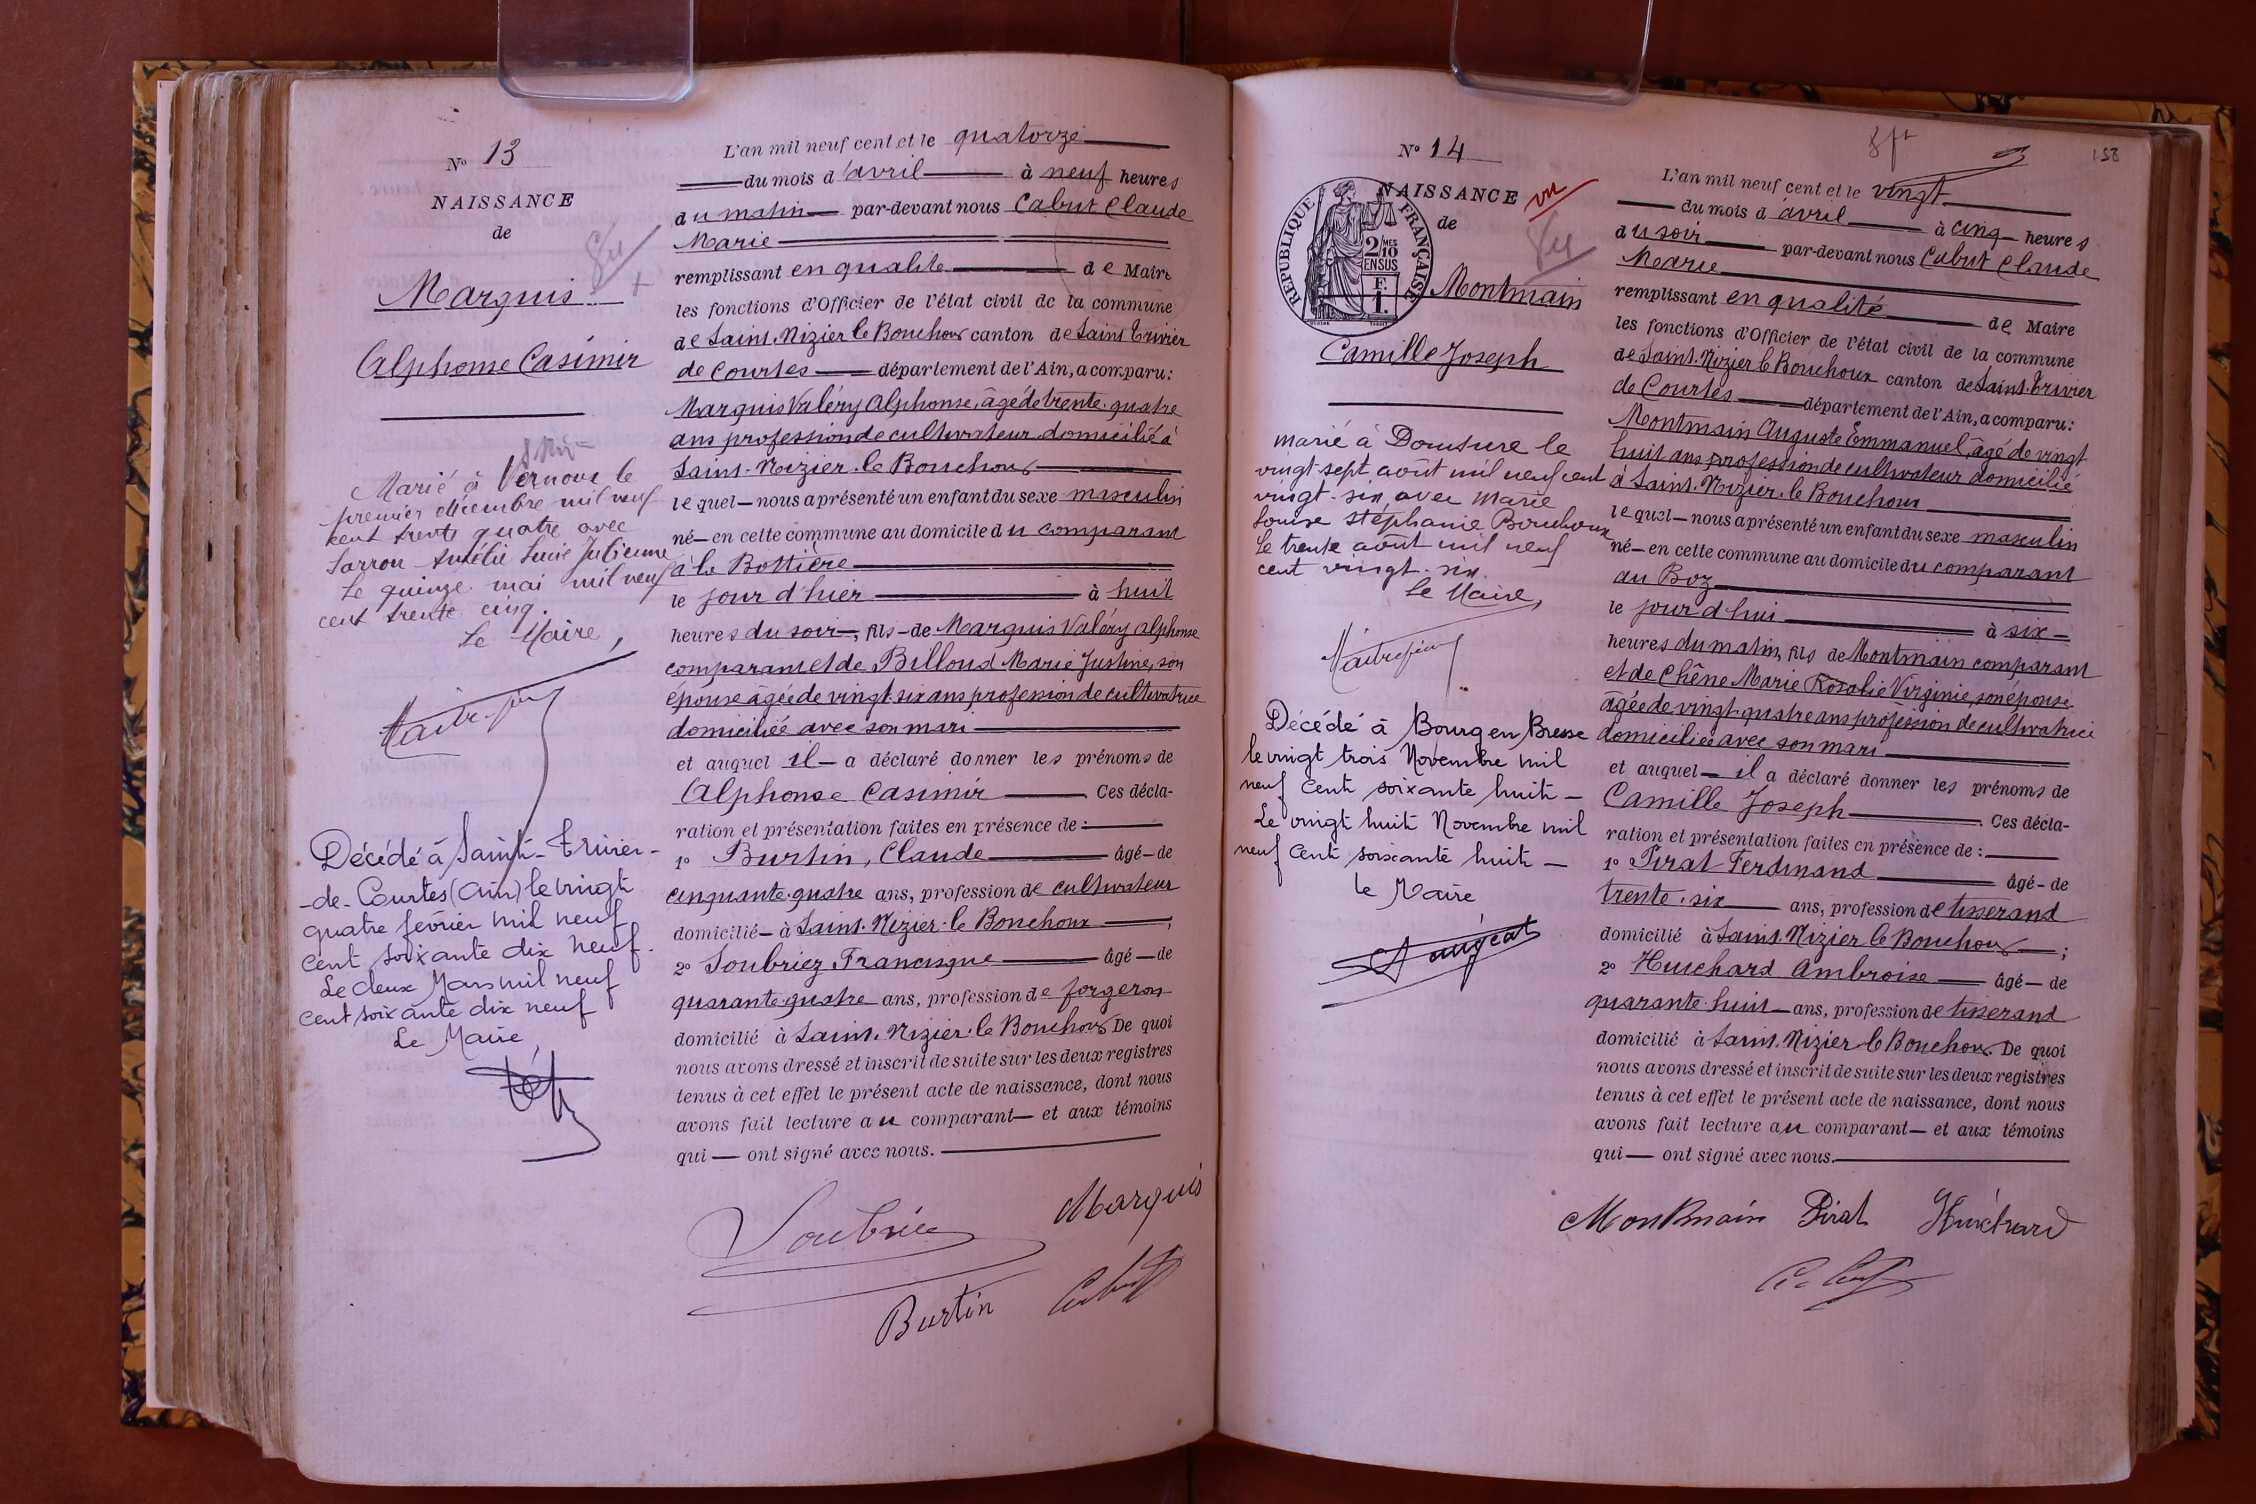 N° 13
NAISSANCE
de
Marquis
Alphonse Casimir
Marié à Vernoux le
premier décembre mil neuf
cent trente quatre avec
Sarron Amélie Lucie Julienne
Le quinze mai mil neuf
cent trente cinq.
Le Maire,
Décédé à Saint-Trivier-
-de-Courtes (Ain) le vingt
quatre février mil neuf
cent soixante dix neuf.
Le deux Mars mil neuf
cent soixante dix neuf
Le Maire,
L'an mil neuf cent et le quatorze
du mois d'avril à neuf heures
du matin par-devant nous Cabut Claude
Marie
remplissant en qualité de Maire
les fonctions d'Officier de l'état civil de la commune
de Saint-Nizier le Bouchoux canton de Saint Trivier
de Courtes département de l'Ain, a comparu:
Marquis Valéry Alphonse, âgé de trente-quatre
ans profession de cultivateur domicilié à
Saint-Nizier-le Bouchoux
lequel nous a présenté un enfant du sexe masculin
né en cette commune au domicile du comparant
à la Bottière
le jour d'hier à huit
heures du soir, fils de Marquis Valéry Alphonse
comparant et de Billoud Marie Justine, son
épouse âgée de vingt-six ans profession de cultivatrice
domiciliée avec son mari
et auquel il a déclaré donner les prénoms de
Alphonse Casimir Ces décla-
ration et présentation faites en présence de:
1° Burtin, Claude âgé de
cinquante-quatre ans, profession de cultivateur
domicilié à Saint-Nizier-le Bouchoux;
2° Soubriez Francisque âgé de
quarante-quatre ans, profession de forgeron
domicilié à Saint-Nizier-le Bouchoux De quoi
nous avons dressé et inscrit de suite sur les deux registres
tenus à cet effet le présent acte de naissance, dont nous
avons fait lecture au comparant et aux témoins
qui ont signé avec nous.
Marquis
Burtin
N° 14
NAISSANCE
de
vu
RÉPUBLIQUE FRANÇAISE
2/10
EN SUS
Montmain
Camille Joseph
marié à Domsure le
vingt-sept août mil neuf cent
vingt-six avec Marie
Louise Stéphanie Bouchoux
Le trente août mil neuf
cent vingt-six.
Le Maire,
Décédé à Bourg en Bresse
le vingt trois Novembre mil
neuf cent soixante huit
Le vingt huit Novembre mil
neuf cent soixante huit
le Maire
158
L'an mil neuf cent et le vingt
du mois d'avril à cinq heures
du soir par-devant nous Cabut Claude
Marie
remplissant en qualité de Maire
les fonctions d'Officier de l'état civil de la commune
de Saint-Nizier le Bouchoux canton de Saint-Trivier
de Courtes département de l'Ain, a comparu:
Montmain Auguste Emmanuel, âgé de vingt
huit ans profession de cultivateur domicilié
à Saint-Nizier-le Bouchoux
lequel nous a présenté un enfant du sexe masculin
né en cette commune au domicile du comparant
au Boz
le jour d'hui à six
heures du matin, fils de Montmain comparant
et de Chêne Marie Rosalie Virginie, son épouse
âgée de vingt-quatre ans profession de cultivatrice
domiciliée avec son mari
et auquel il a déclaré donner les prénoms de
Camille Joseph Ces décla-
ration et présentation faites en présence de:
1° Pirat Ferdinand âgé de
trente-six ans, profession de tisserand
domicilié à Saint-Nizier le Bouchoux;
2° Huchard Ambroise âgé de
quarante-huit ans, profession de tisserand
domicilié à Saint-Nizier-le Bouchoux. De quoi
nous avons dressé et inscrit de suite sur les deux registres
tenus à cet effet le présent acte de naissance, dont nous
avons fait lecture au comparant et aux témoins
qui ont signé avec nous.
Montmain Pirat Huichard